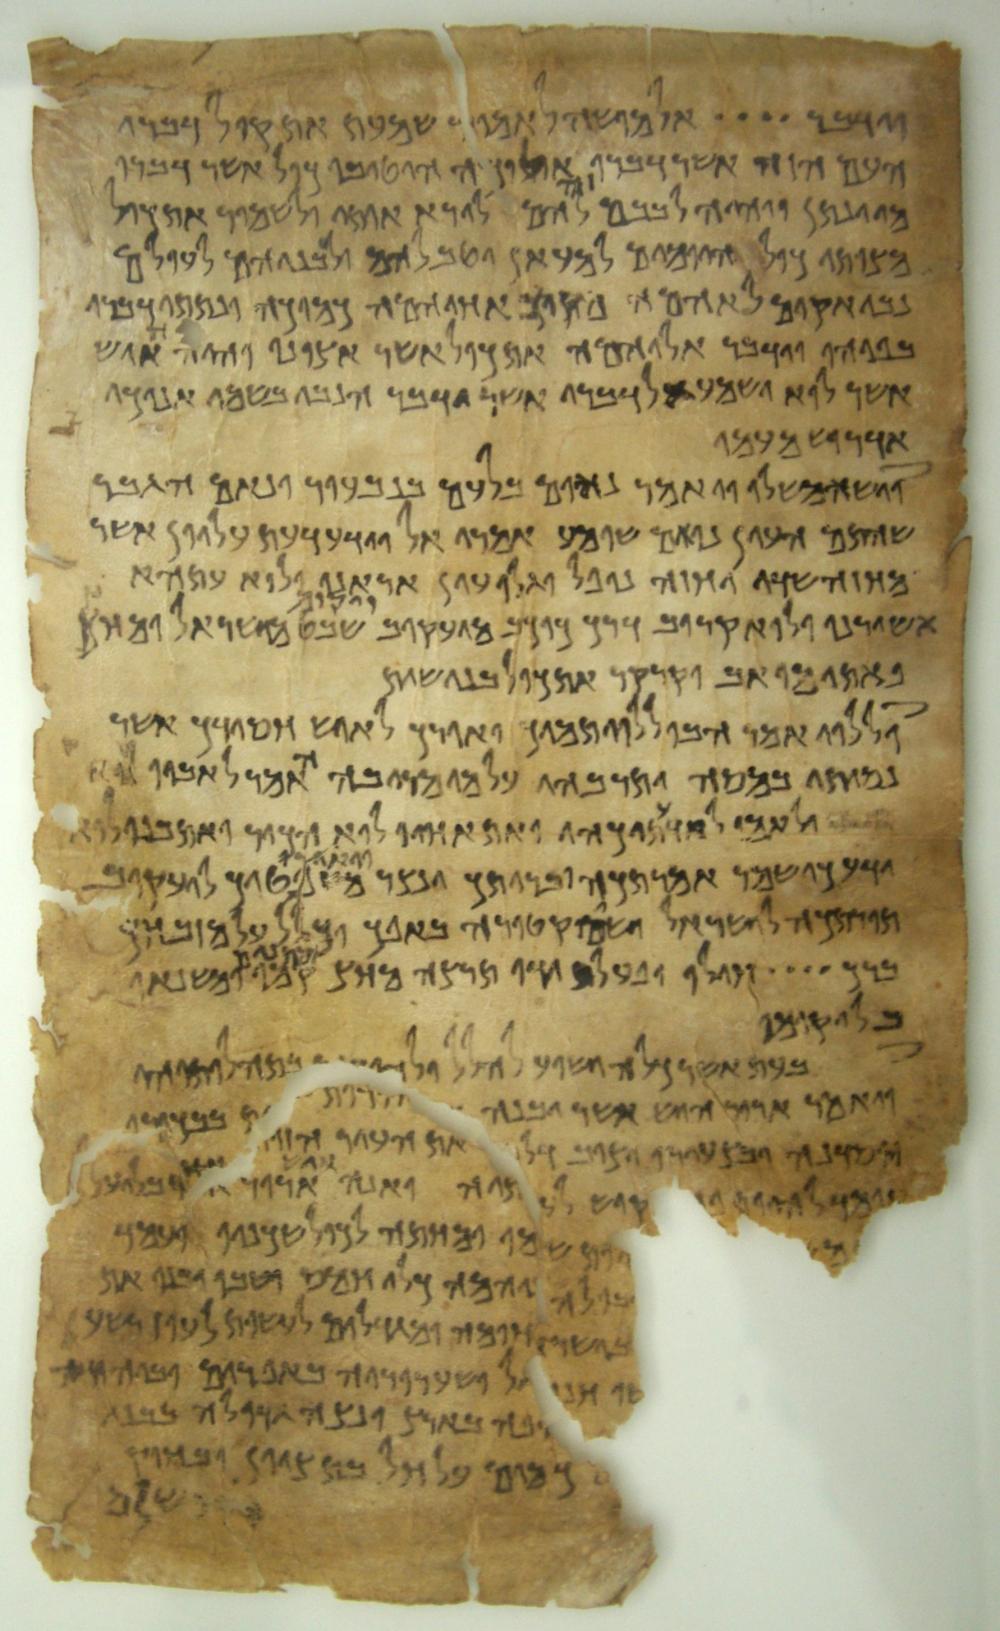 וידבר •••• אל מושה לאמור שמעת את קול דברי
העם הזה אשר דברו אליכה היטיבו כול אשר דברו
מי ינתן ויהיה לבבם זה להם לירא אותי ולשמור את כול
מצותי כול היומים למעאן יטב להם ולבניהם לעולם
נבי אקים לאהמה מקרב אחיהמה כמוכה ונתתי דברי
בפיהו וידבר אליהמה את כול אשר אצונו והיה האיש
אשר לוא ישמע אל דברי אשר ידבר הנבי בשמי אנוכי
אדרוש מעמו
וישא משלו ויאמר נאום בלעם בנבעור ונאם הגבר
שהתם העין נואם שומע אמרי אל וידע דעת עליון אשר
מחזה שדי יחזה נופל וגלו עין אראנו ולוא עתהא
אשורנו ולוא קרוב דרך כוכב מיעקוב ויקום שבט מישראל ומחץ
פאתי מואב וקרקר את כול בני שית
וללוי אמר הבו ללוי תמיך ואורך לאיש חסידך אשר
נסיתו במסה ותרבהו על מי מריבה האמר לאביו לוא
ולאמו לוא ידעתיכהו ואת אחיו לוא הכיר ואת בנו לוא
ידע כי שמר אמרתכה ובריתך ינצר ויאירו משפטיך ליעקוב
תורתכה לישראל ישים קטורה באפך וכליל על מזבחך
ברך •••• חילו ופעל ידו תרצה מחץ מתנים קמו ומשנאו
בל יקומו
בעת אשר כלה ישוע להלל ולהודות בתהלותיהו
ויאמר ארור היש אשר יבנה את העיר הזות בבכורו
ייסדנה ובצעירו יציב ואנה איש ארור בליעל
להיות יקוש ומחתה לכול שכניו ועמד
כלי חמס ושבו ובנו את
חומה ומגדלים לעשות לעוז רשע
ושערוריה באפרים
בארץ ונצה גדולה בבני
כמים על חל בת ציון ובחוק
ירושלם